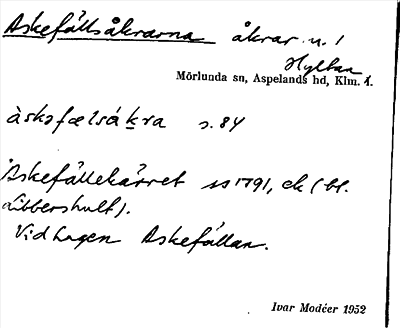 Askefällsåkrarna åkrar n. 1
Hyltan
Mörlunda sn, Aspelands hd, Klm. l.
àskəfælsákra s. 84
Askefällekärret ss 1791, ek (bl.
Libbershult).
Vid hagen Askefällan.
Ivar Modéer 1952